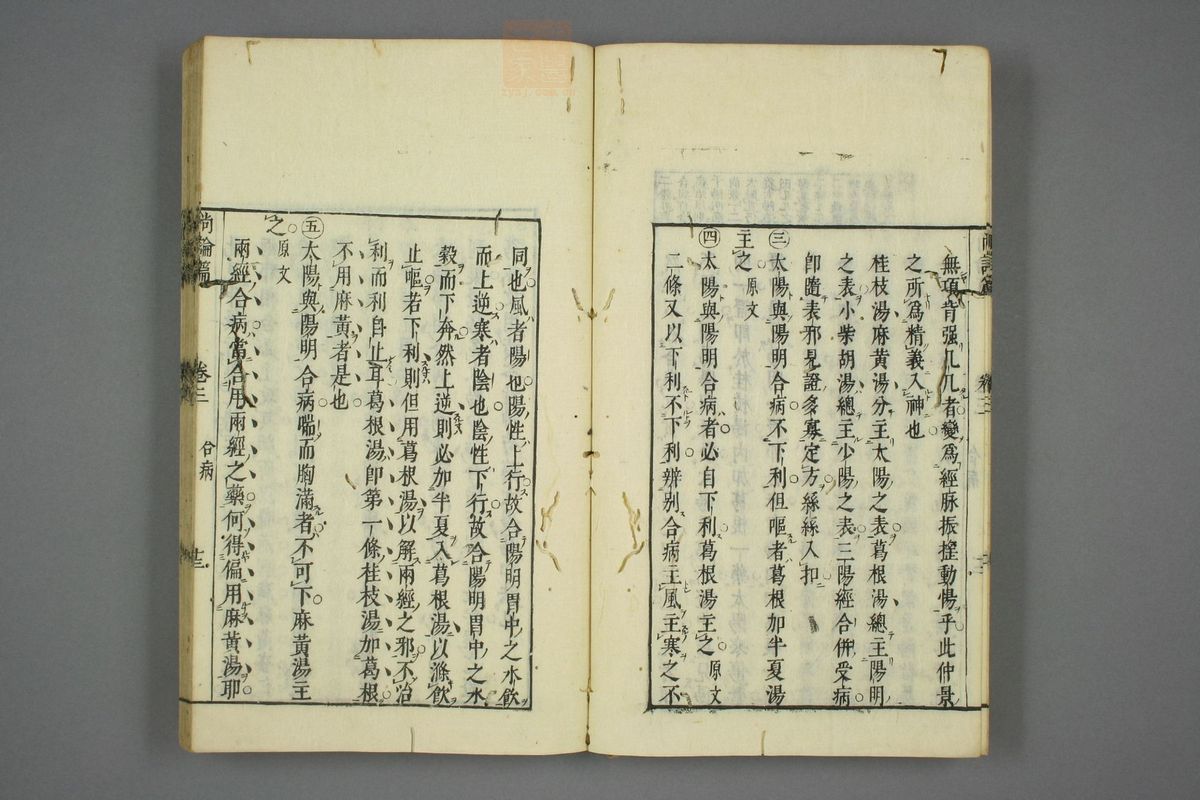 無項背强几几者變爲經脉振搖動惕乎此仲景
之所爲精義入神也
桂枝湯麻黄湯分主太陽之表葛根湯總主陽明
之表小柴胡湯總主少陽之表三陽經合併受病
卽隨表邪見證多寡定方絲絲入扣
㊂太陽與陽明合病不下利但嘔者葛根加半夏湯
主之原文
㊃太陽與陽明合病者必自下利葛根湯主之原文
二條又以下利不下利辨别合病主風主寒之不
同也風者陽也陽性上行故合陽明胃中之水飲
而上逆寒者陰也陰性下行故合陽明胃中之水
穀而下奔然上逆則必加半夏入葛根湯以滌飲
止嘔若下利則但用葛根湯以解兩經之邪不治
利而利自止耳葛根湯卽第一條桂枝湯加葛根
不用麻黄者是也
㊄太陽與陽明合病喘而胸滿者不可下麻黄湯主
之原文
兩經合病當合用兩經之藥何得偏用麻黄湯耶
尚論篇
卷三
合病
十三